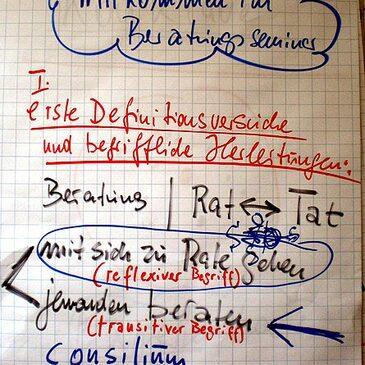 Willkommen im
Beratungsseminar
I.
erste Definitionsversuche
und begriffliche Herleitungen:
Beratung | Rat ↔ Tat
mit sich zu Rate gehen
(reflexiver Begriff)
jemanden beraten
(transitiver Begriff)
Consilium